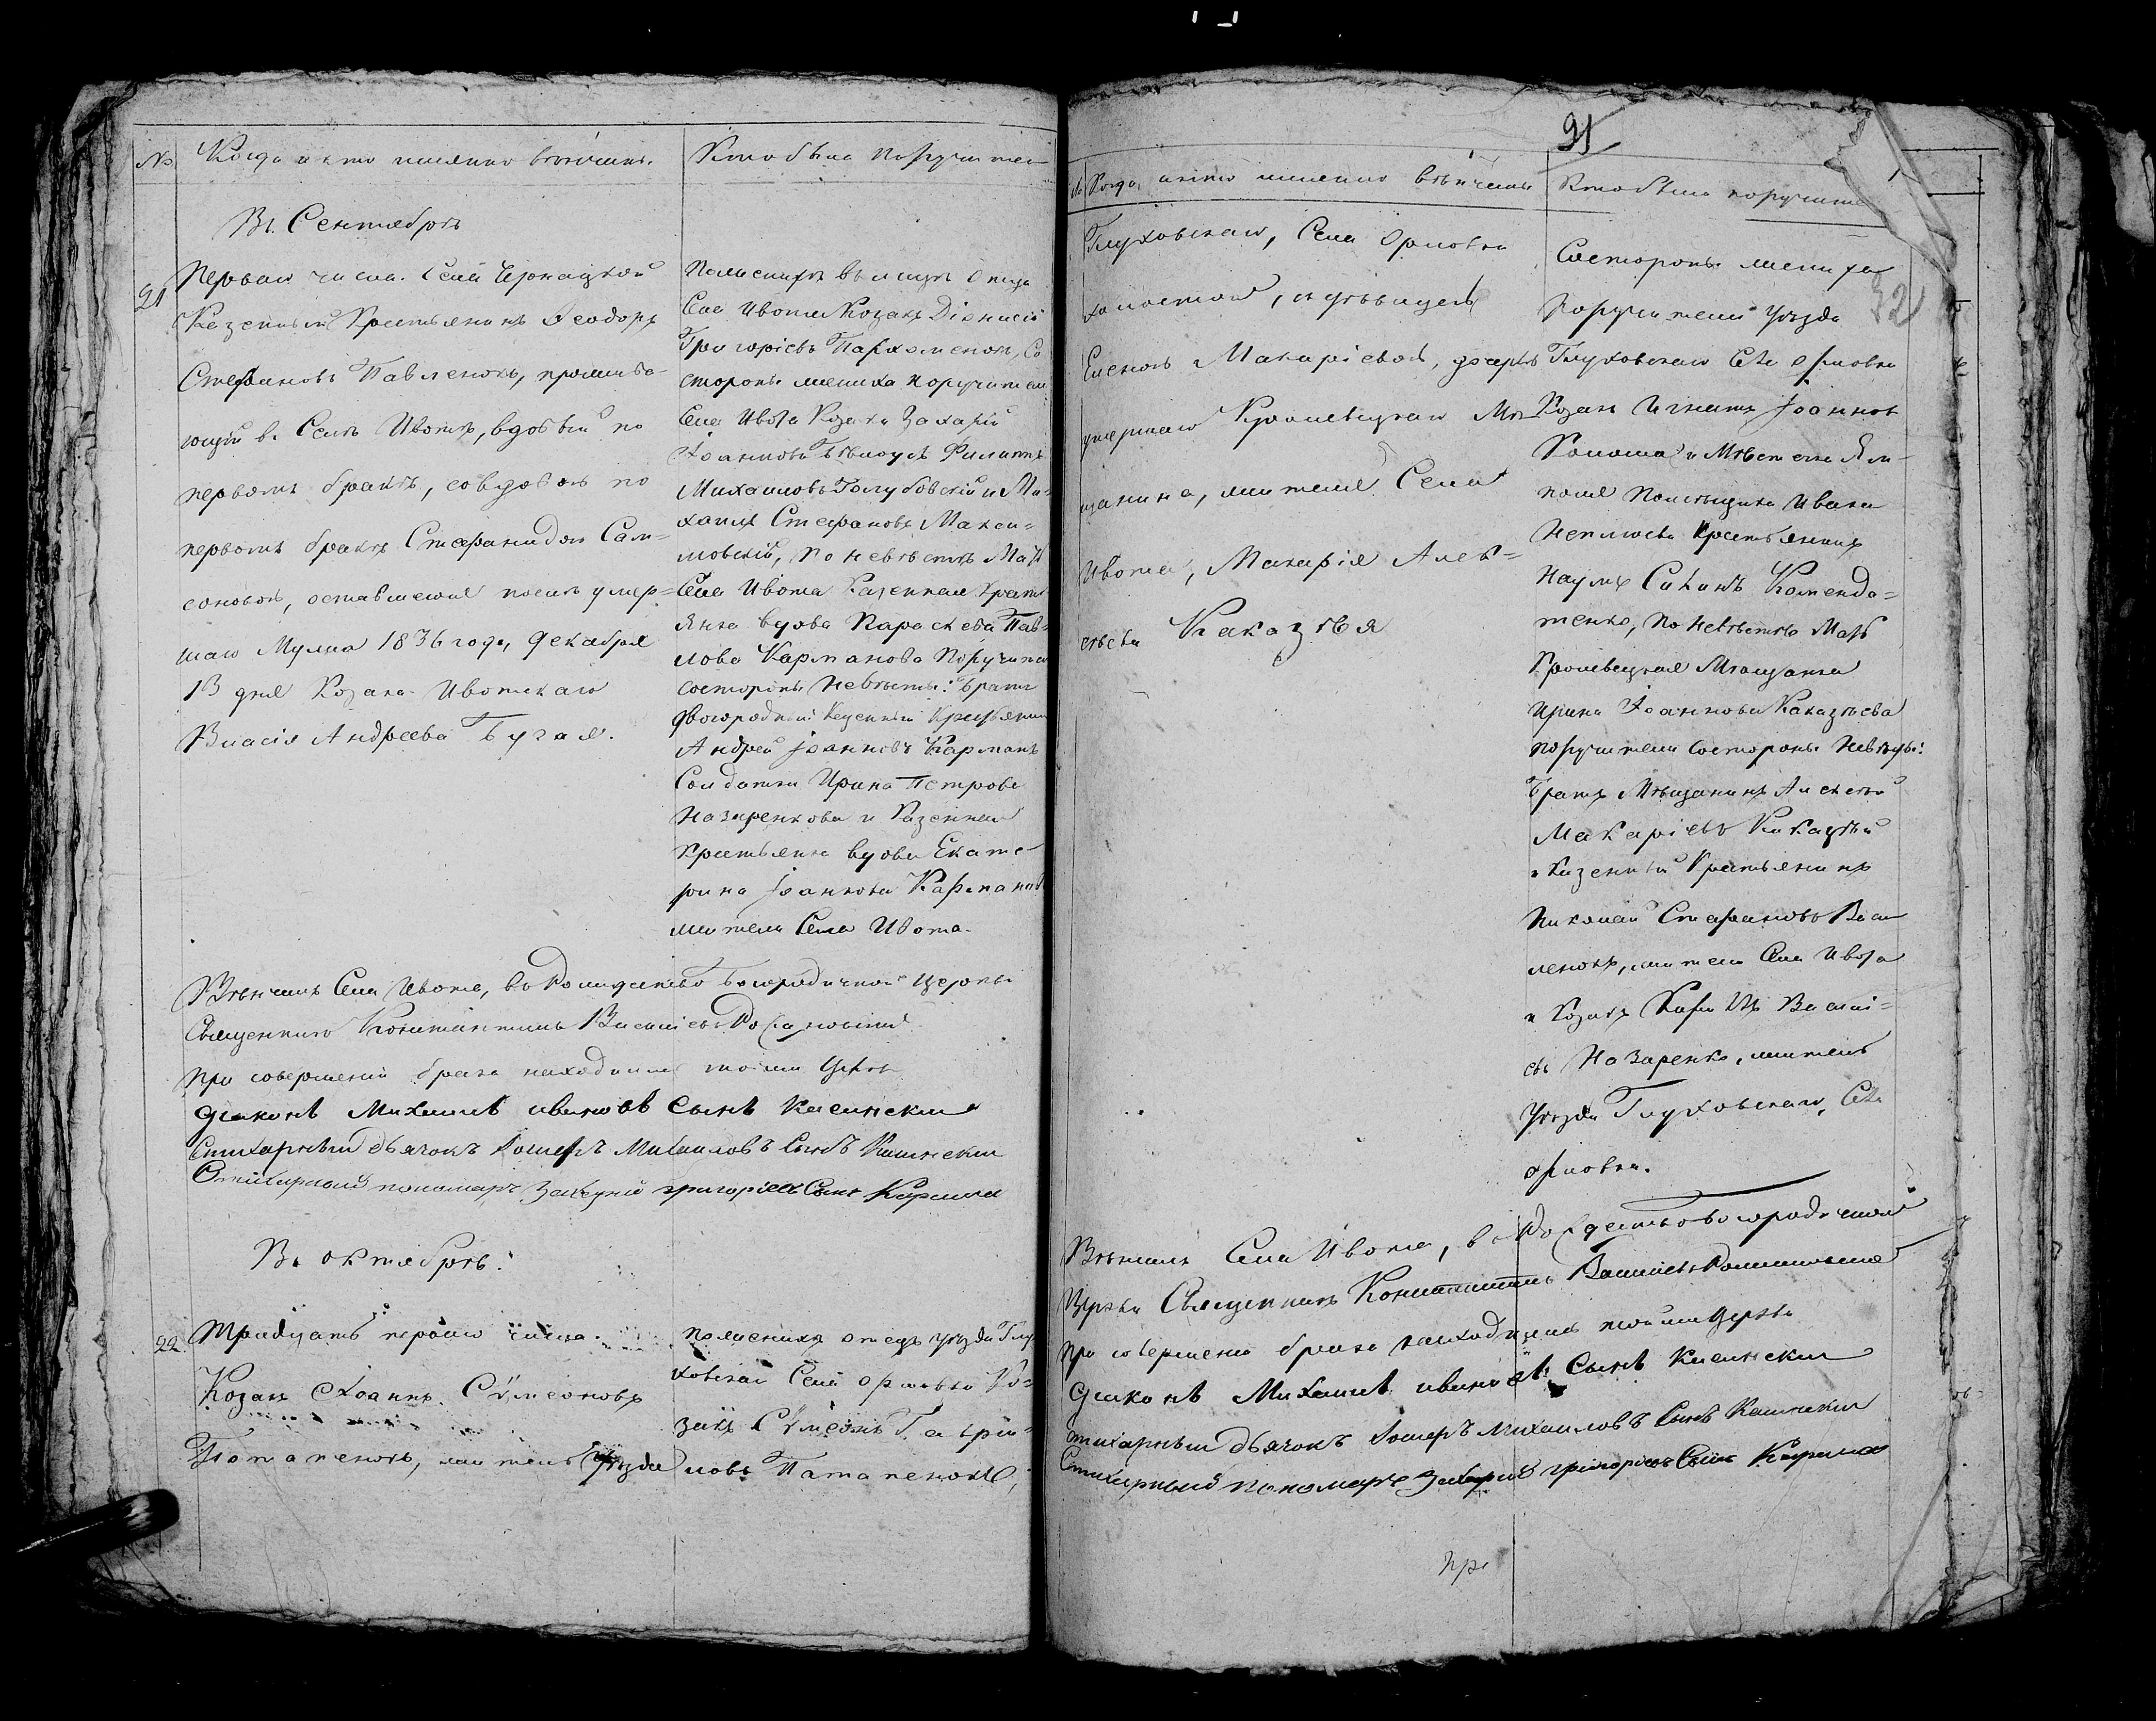 №
Когда и кто именно венчаны.
Кто были поручител
Въ Сентябрѣ
21
Перваго числа. Села
Казенный Крестьянинъ Ѳеодоръ
Стефановъ Павленокъ, прожива-
ющій въ Селѣ Ивотѣ, вдовый по
первомъ бракѣ, со вдовою по
первомъ бракѣ Стефанидою Сам-
соновою, оставшеюся послѣ умер-
шаго Мужа 1836 года, Декабря
13 дня Козака Ивотскаго
Власія Андреева Бугая.
По женихѣ вмѣсто Отца
Села Ивота Козакъ Діонисій
Григоріевъ Пархоменокъ, Со
стороны жениха поручители
Села Ивота Козаки Захарій
Іоанновъ Бѣлоусъ Филиппъ
Михаиловъ Голубовскій и Ми-
хаилъ Стефановъ Макси-
мовскій, по невѣстѣ Мать
Села Ивота Казенная Крест
янка вдова Параскева Пав-
лова Карпанова Поручители
со стороны Невѣсты: Братъ
двоюродный Казенный Крестьянин
Андрей Іоанновъ Карпанъ
Солдатка Ирина Петрова
Назаренкова и Казенная
Крестьянка вдова Екате
рина Іоаннова Карпанов
жители Села Ивота.
Вѣнчалъ Села Ивота, Рождество Богородичной Церкви
Священникъ Константинъ Василіевъ
При совершеніи брака находились тойже Церкви
Діаконъ Михаилъ Ивановъ Сынъ
Стихарный дьячокъ Михаиловъ Сынъ
Стихарный пономаръ Захарій Григоріевъ Сынъ
Въ Октябрѣ:
22.
Тридцать перваго числа.
Козакъ Іоаннъ Сѵмеоновъ
Потапенокъ, житель Уѣзда
по женихѣ отецъ уѣзда Глу
ховскаго Села Орловки Ко-
закъ Сѵмеонъ Гаврі-
ловъ Патапенокъ,
91
32
№
Когда, и кто именно вѣнчаны
Кто были поручите
Глуховскаго, Села Орловки
холостой, съ дѣвицею
Еленою Макаріевой, дочерью
умершаго Кролевецкаго Мѣ
щанина, жителя Села
Ивота, Макарія Алек-
сѣева Каказѣя
Со стороны жениха
Поручители Уѣзда
Глуховскаго Села Орловки
Козакъ Игнатъ Іоаннов
и Мѣстечка Ям-
поля Помѣщика Ивана
Неплюева Крестьянинъ
Наумъ Коменда-
тенко, по Невѣстѣ Мать
Кролевецкая Мѣщанка
Ирина Іоаннова Каказѣева
поручители со стороны Невѣсты:
Братъ Мѣщанинъ Алексѣй
Макаріевъ Каказѣй
и Казенный Крестьянинъ
Николай Стефановъ
ленокъ, жители Села Ивота
и Козакъ Василі-
евъ Назаренко, житель
Уѣзда Глуховскаго, Села
Орловки.
Вѣнчалъ Села Ивота, Рождество Богородичной
Церкви Священникъ Константинъ Василіевъ
при совершеніи брака находились тойже Церкви
Діаконъ Михаилъ Ивановъ Сынъ
Стихарный дьячокъ Михаиловъ Сынъ
Стихарный пономаръ Захарій Григоріевъ Сынъ
При